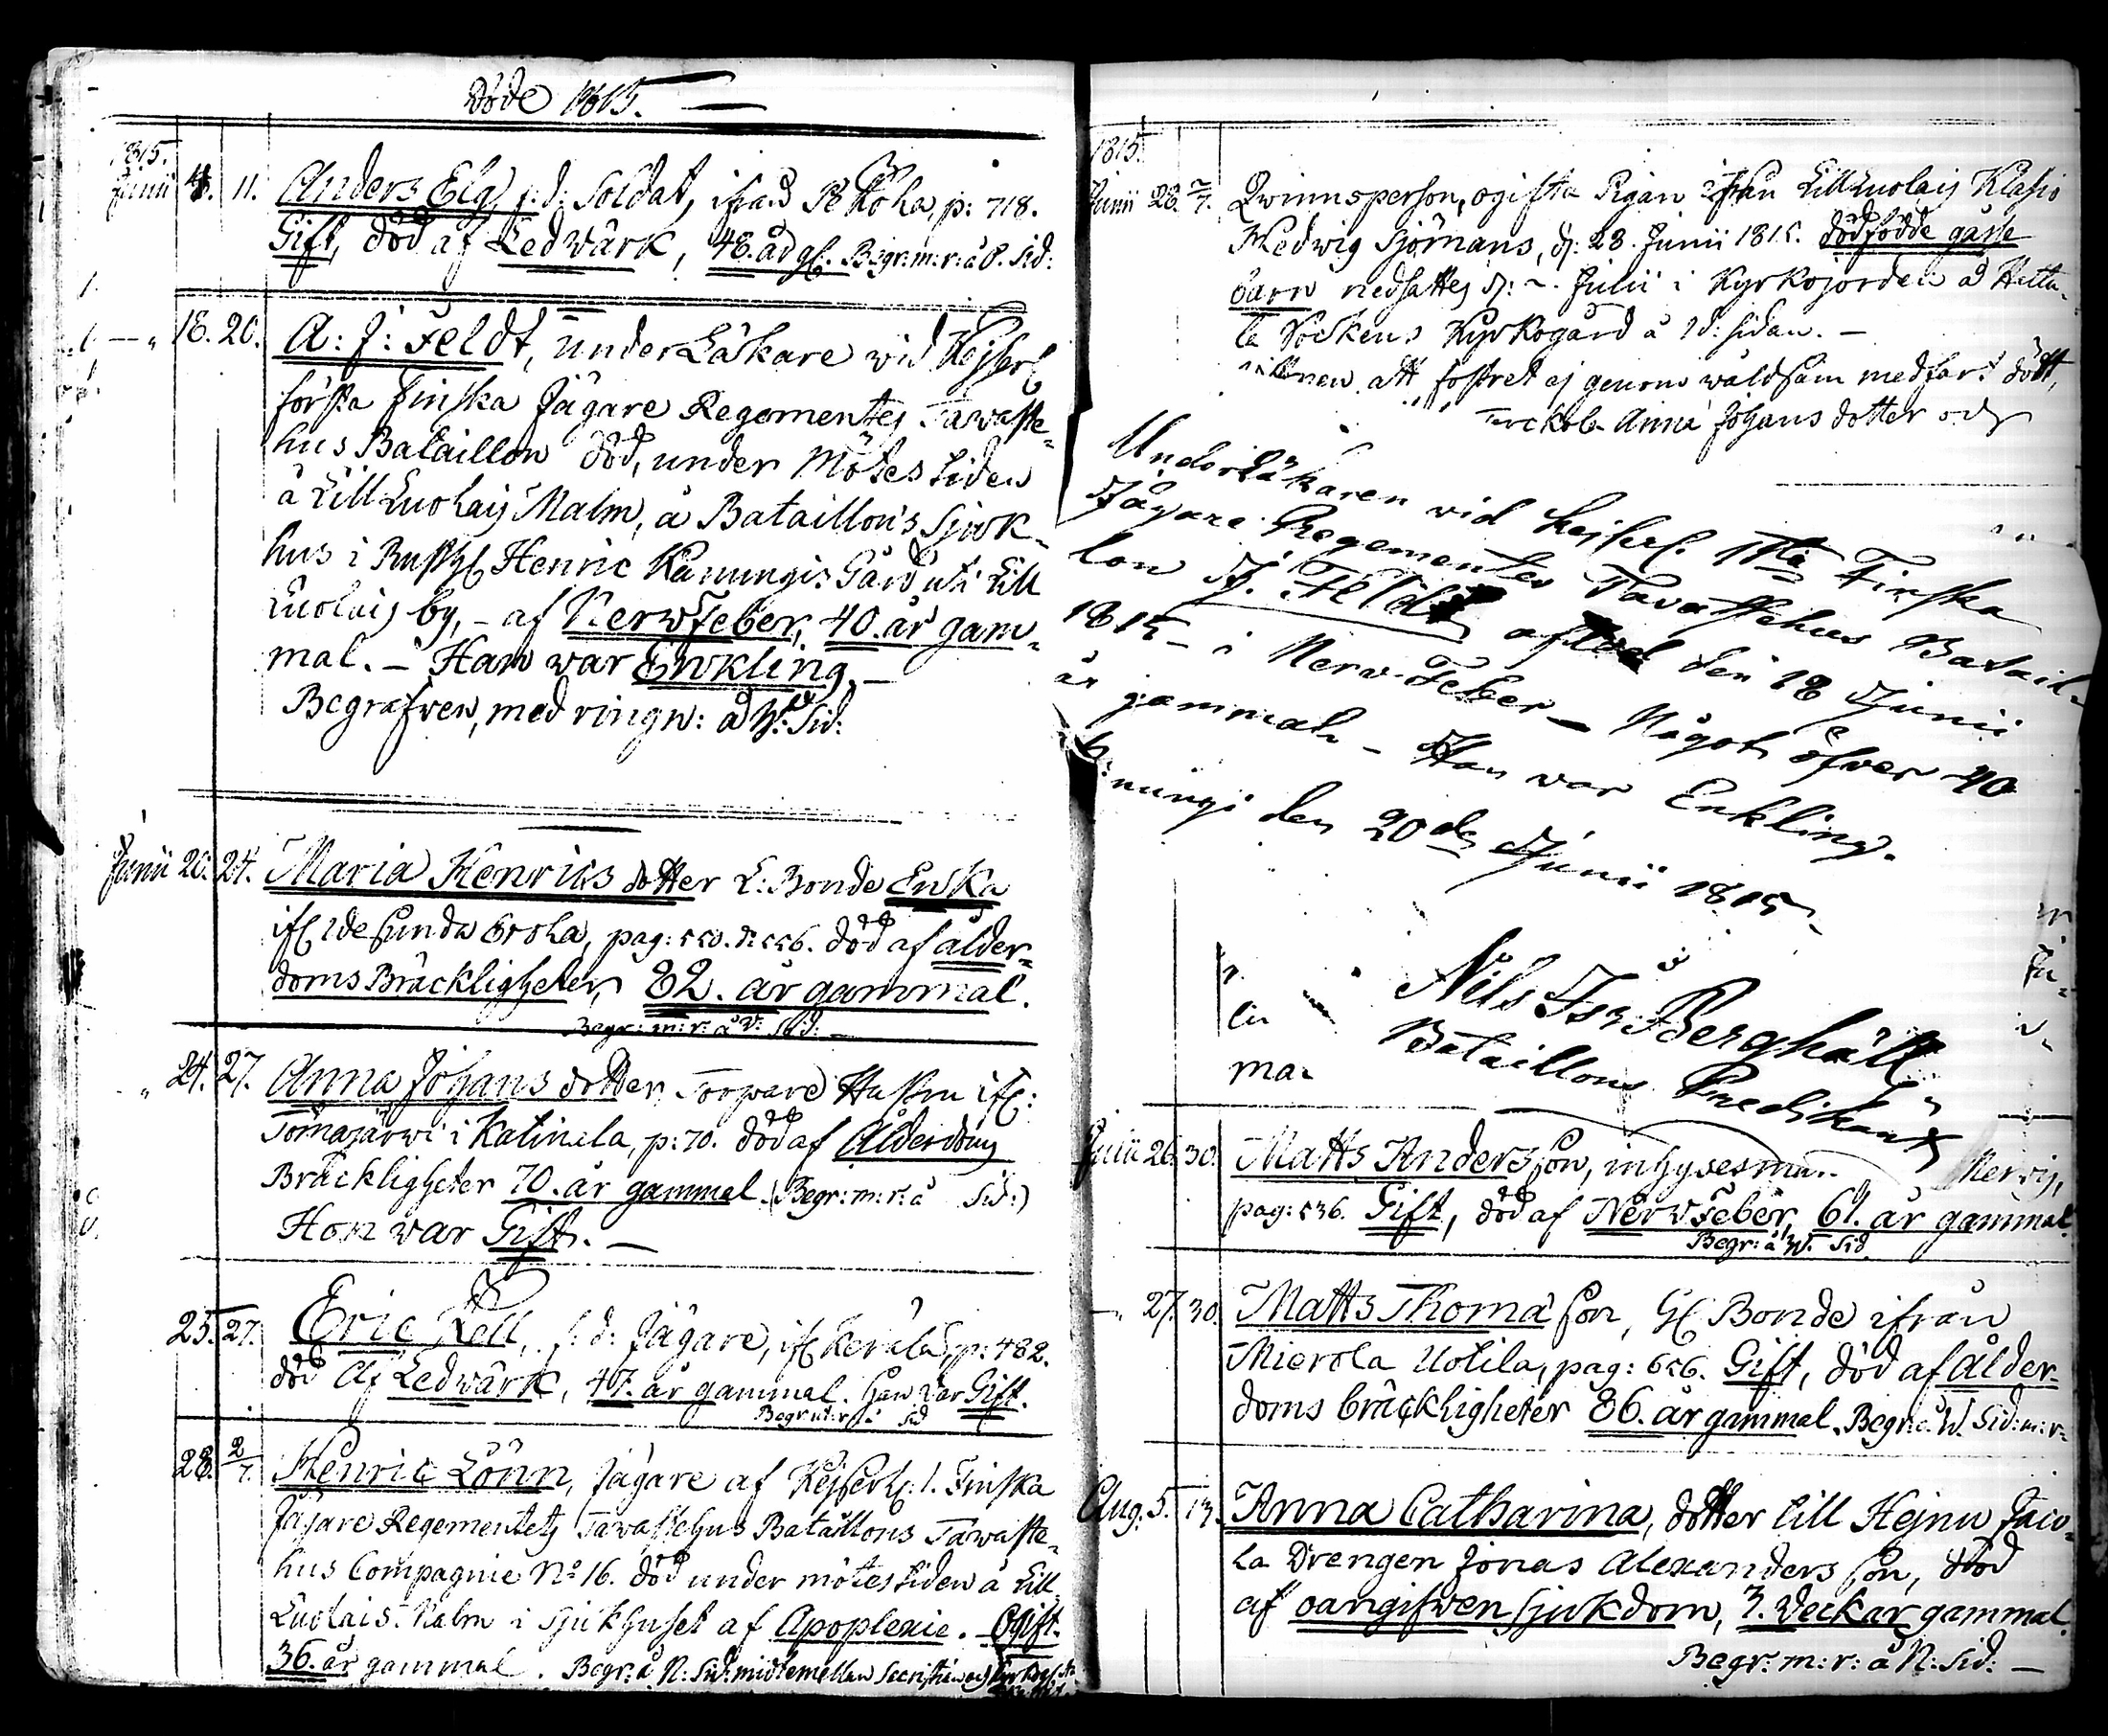 Döde 1815.
1815.
Junii 11. Anders Elg, f: d: Soldat, ifrån p: 718.
Gift, död af Ledwärk, 48. år gl. Begr: m: r: å Sid:
18. 20. A: J: Feldt, underLäkare wid Kejserl
första Finska Jägare Regementes Tawaste-
hus Bataillon död, under Mötes tiden
å Lill Luolais Malm, å Bataillons Sjuk-
hus i Henric Gård uti Lill
Luolais by, - af Nerwfeber, 40. år gam-
mal. - Han war Enkling. -
Begrafwen, med ringn: å Sid:
Junii 20. 24. Maria Henrics dotter L: Bonde Enka
pag: död af ålder-
doms Bräckligheter, 82. år gammal.
Begr: m: r: å Sid: -
" 24. 27. Anna Johans dotter, Torpare
i Katinala, p: 70. död af Ålderdoms
Bräckligheter 70. år gammal. (Begr: m: r: å Sid:)
Hon war Gift. -
25. 27. Eric f: d: Jägare, p: 482.
död af Ledwärk, 47. år gammal. han war Gift.
Begr: m: r: å Sid
28. 2/7. Henric Lönn, Jägare af Kejserl: 1. Finska
Jägare Regementets Tawastehus Bataillons Tawaste-
hus Compagnie No 16. död under mötes tiden å Lill
Luolais Malm i Sjukhuset af Apoplexie. Ogift.
36. år gammal. Begr: å N: Sid: midt emellan
1815.
Junii 28. 2/7. Qwinnsperson, ogifta Pigan ifrån Lill Luolais
Hedwig Sjömans, d: 28. Junii 1815. dödfödde gåsse
barn nedsattes d: 2. Julii i Kyrkojorden å Hattu-
la Sockens Kyrkogård å Sidan. -
att fostret ej genom wåldsam medfart dödt,
Anna Johans dotter och
Underläkaren vid Kejserl. 1sta Finska
Jägare Regementes Tavastehus Batail-
lon J. Feldt afled den 18 Junii
1815 - i Nerv-Feber - Något öfver 40
år gammal - Han var Enkling.
den 20de Junii 1815
Nils Isr Berghäll
Bataillons Predikant
Julii 26. 30. Matts Anders son, inhyses
pag: 536. Gift, död af Nerwfeber, 61. år gammal.
Begr: å W. Sid
27. 30. Matts Thoma son, Bonde ifrån
Mierola Uotila, pag: 656. Gift, död af ålder-
doms bräckligheter 86. år gammal. Begr: å W. Sid: m: r:
Aug. 5. 13. Anna Catharina, dotter till
Drengen Jonas Alexanders son, död
af oangifwen sjukdom, 3. Veckar gammal.
Begr: m: r: å N: Sid: -